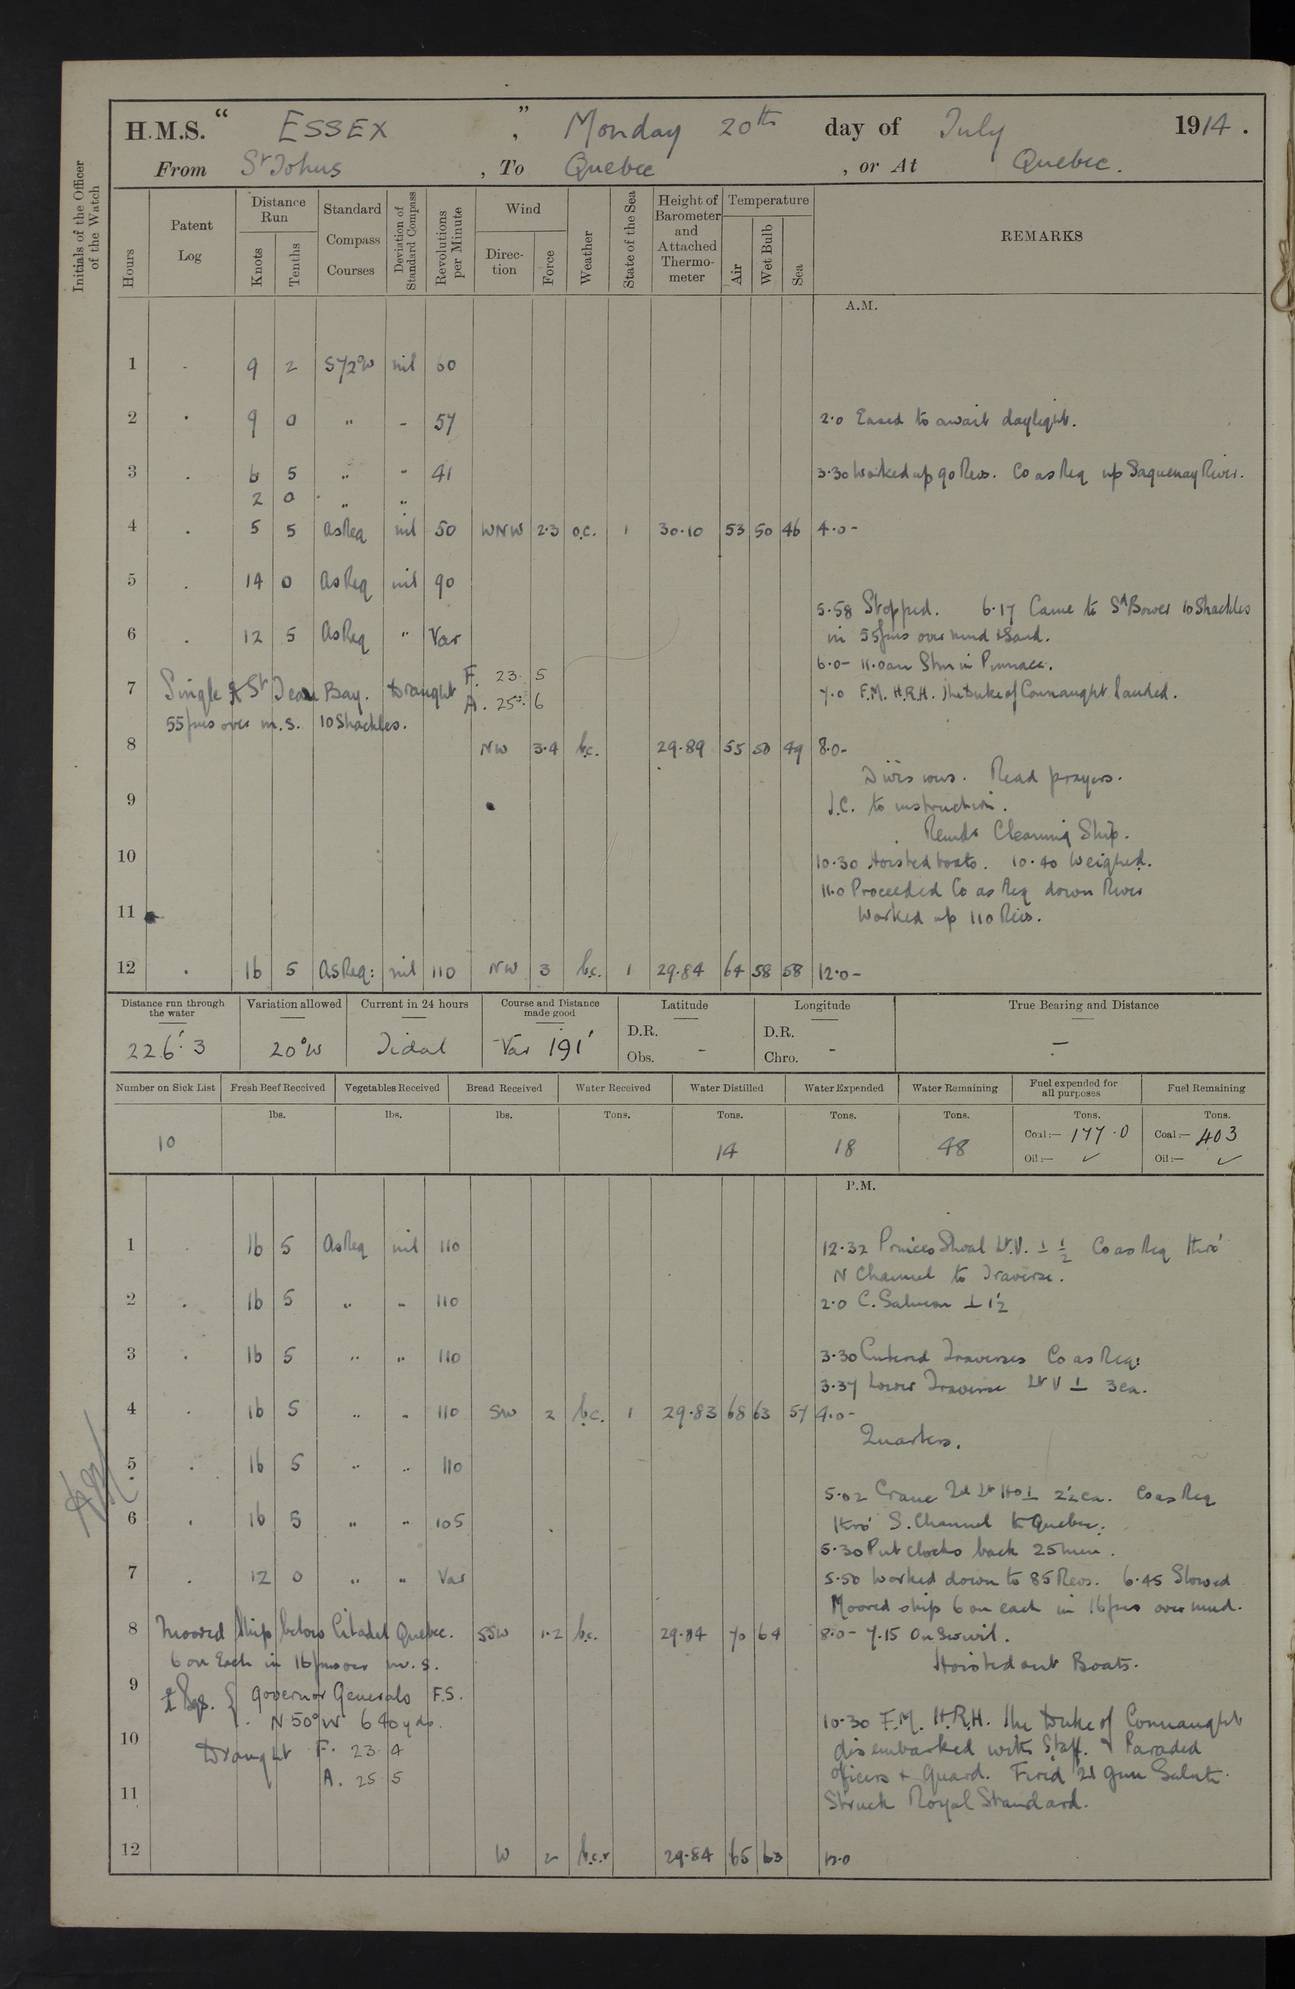 H.M.S. “ ESSEX ” , Monday 20th day of July 1914.
From St Johns , To Quebec , or At Quebec.
Initials of the Officer of the Watch
Hours
Patent Log
Distance Run
Knots
Tenths
Standard Compass Courses
Deviation of Standard Compass
Revolutions per Minute
Wind
Direction
Force
Weather
State of the Sea
Height of Barometer and Attached Thermometer
Temperature
Air
Wet Bulb
Sea
REMARKS
A.M.
1 . 9 2 S72W nil 60
2 . 9 0 " - 57 2.0 Eased to await daylight.
3 . 6 5 " " 41 3.30 Worked up 90 Revs. Co as Req up Saguenay River.
2 0 " "
4 . 5 5 as Req nil 50 WNW 2.3 o.c. 1 30.10 53 50 46 4.0-
5 . 14 0 as Req nil 90
5.58 Stopped. 6.17 Came to Sd Bower 10 Shackles
6 . 12 5 as Req " Var in 55 fms over mud & Sand.
6.0- 11.0am Stm in Pinnace.
7 Single St Jean Bay. Draught F. 23. 5 7.0 F.M. H.R.H. The Duke of Connaught landed.
A. 25. 6
55 fms over m.s. 10 Shackles.
8 NW 3.4 b.c. 29.89 55 50 49 8.0-
Divisions. Read prayers.
9 to instruction.
Remdr Cleaning Ship.
10 10.30 Hoisted boats. 10.40 Weighed.
11.0 Proceeded Co as Req down River
11 Worked up 110 Revs.
12 . 16 5 As Req: nil 110 NW 3 b.c. 1 29.84 64 58 58 12.0-
Distance run through the water
226.3
Variation allowed
20°W
Current in 24 hours
Tidal
Course and Distance made good
Var 191'
Latitude
D.R.
Obs. -
Longitude
D.R.
Chro. -
True Bearing and Distance
-
Number on Sick List
10
Fresh Beef Received
lbs.
Vegetables Received
lbs.
Bread Received
lbs.
Water Received
Tons.
Water Distilled
Tons.
14
Water Expended
Tons.
18
Water Remaining
Tons.
48
Fuel expended for all purposes
Tons.
Coal:— 177.0
Oil:— ✓
Fuel Remaining
Tons.
Coal:— 403
Oil:— ✓
P.M.
1 16 5 as Req nil 110 12.32 Princes Shoal Lt.V. ⊥ ½ Co as Req thro'
N Channel to Traverse.
2 . 16 5 " " 110 2.0 C. Salmon ⊥ 1½
3 . 16 5 " " 110 3.30 Entered Traverses Co as Req:
3.37 Lower Traverse Lt V ⊥ 3ca.
4 . 16 5 " " 110 SW 2 b.c. 1 29.83 68 63 57 4.0-
Quarters.
5 . 16 5 " " 110
5.02 Crane Id Lt Ho ⊥ 2½ca. Co as Req
6 . 16 5 " " 105 thro' S. Channel to Quebec.
5.30 Put clocks back 25 min.
7 . 12 0 " " Var 5.50 Worked down to 85 Revs. 6.45 Slowed
Moored ship 6 on each in 16 fms over mud.
8 Moored Ship below Citadel Quebec. SSW 1.2 b.c. 29.84 70 64 8.0- 7.15 On Swivel.
6 on Each in 16 fms over m.s. Hoisted out Boats.
9 Bgs. { Governor Generals F.S.
N 50° W 640 yds. 10.30 F.M. H.R.H. The Duke of Connaught
10 Draught F. 23 4 disembarked with Staff. & Paraded
A. 25 5 officers & Guard. Fired 21 gun Salute.
11 Struck Royal Standard.
12 W 2 29.84 65 63 12.0